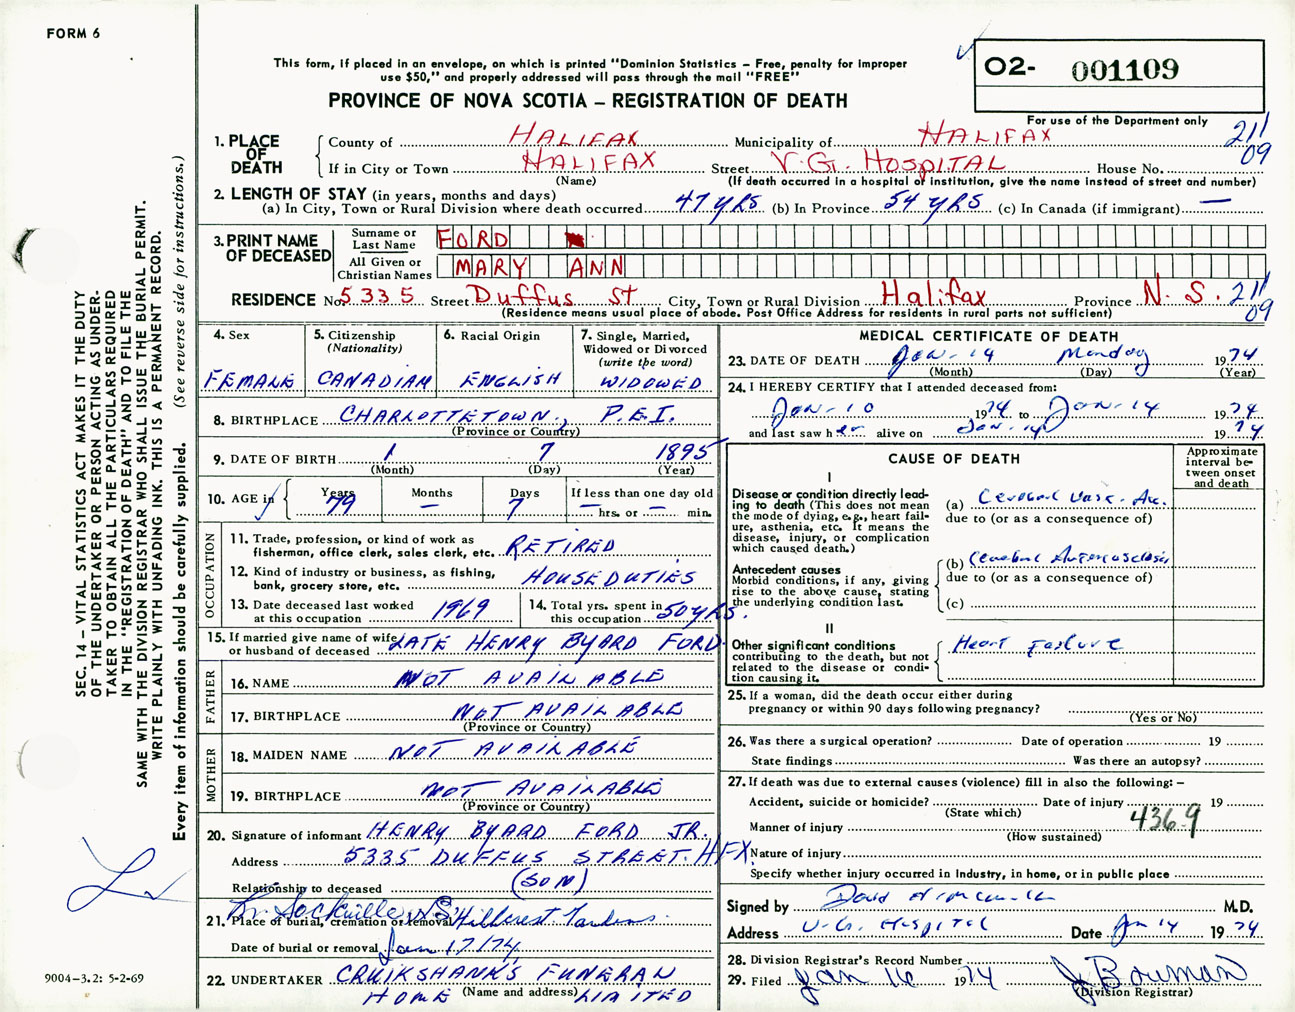 FORM 6
This form, if placed in an envelope, on which is printed "Dominion Statistics – Free, penalty for improper
use $50," and properly addressed will pass through the mail "FREE"
PROVINCE OF NOVA SCOTIA – REGISTRATION OF DEATH
02- 001109
For use of the Department only
211
09
1. PLACE OF DEATH
County of HALIFAX Municipality of HALIFAX
If in City or Town HALIFAX Street V.G. HOSPITAL House No.
(Name) (If death occurred in a hospital of institution, give the name instead of street and number)
2. LENGTH OF STAY (in years, months and days)
(a) In City, Town or Rural Division where death occurred 47 YRS (b) In Province 54 YRS (c) In Canada (if immigrant) —
3. PRINT NAME OF DECEASED
Surname or Last Name FORD
All Given or Christian Names MARY ANN
RESIDENCE No. 5335 Street Duffus St City, Town or Rural Division Halifax Province N.S. 211
09
(Residence means usual place of abode. Post Office Address for residents in rural parts not sufficient)
4. Sex
FEMALE
5. Citizenship
(Nationality)
CANADIAN
6. Racial Origin
ENGLISH
7. Single, Married,
Widowed or Divorced
(write the word)
WIDOWED
8. BIRTHPLACE CHARLOTTETOWN, P.E.I.
(Province or Country)
9. DATE OF BIRTH 1 7 1895
(Month) (Day) (Year)
10. AGE in
Years Months Days If less than one day old
79 — 7 — hrs. or — min.
OCCUPATION
11. Trade, profession, or kind of work as
fisherman, office clerk, sales clerk, etc. RETIRED
12. Kind of industry or business, as fishing,
bank, grocery store, etc. HOUSE DUTIES
13. Date deceased last worked
at this occupation 1969
14. Total yrs. spent in
this occupation 50 YRS.
15. If married give name of wife
or husband of deceased LATE HENRY BYARD FORD
FATHER
16. NAME NOT AVAILABLE
17. BIRTHPLACE NOT AVAILABLE
(Province or Country)
MOTHER
18. MAIDEN NAME NOT AVAILABLE
19. BIRTHPLACE NOT AVAILABLE
(Province or Country)
20. Signature of informant HENRY BYARD FORD JR.
Address 5335 DUFFUS STREET. HFX
Relationship to deceased (SON)
21. Place of burial, cremation or removal Sackville NS Hillcrest Gardens
Date of burial or removal Jan 17/74
22. UNDERTAKER CRUIKSHANK'S FUNERAL
HOME (Name and address) LIMITED
MEDICAL CERTIFICATE OF DEATH
23. DATE OF DEATH Jan-14 Monday 1974
(Month) (Day) (Year)
24. I HEREBY CERTIFY that I attended deceased from:
Jan-10 1974 to Jan-14 1974
and last saw her alive on Jan. 14 1974
CAUSE OF DEATH
Approximate
interval be-
tween onset
and death
I
Disease or condition directly lead-
ing to death (This does not mean
the mode of dying, e.g., heart fail-
ure, asthenia, etc. It means the
disease, injury, or complication
which caused death.)
(a) Cerebral Vasc. Acc.
due to (or as a consequence of)
Antecedent causes
Morbid conditions, if any, giving
rise to the above cause, stating
the underlying condition last.
(b) Cerebral Arteriosclerosis
due to (or as a consequence of)
(c)
II
Other significant conditions
contributing to the death, but not
related to the disease or condi-
tion causing it.
Heart Failure
25. If a woman, did the death occur either during
pregnancy or within 90 days following pregnancy?
(Yes or No)
26. Was there a surgical operation? Date of operation 19
State findings Was there an autopsy?
27. If death was due to external causes (violence) fill in also the following: –
Accident, suicide or homicide? Date of injury 19
(State which)
436.9
Manner of injury
(How sustained)
Nature of injury
Specify whether injury occurred in industry, in home, or in public place
Signed by David M.D.
Address V.G. Hospital Date Jan 14 1974
28. Division Registrar's Record Number
29. Filed Jan 16 1974 J. Bowman
(Division Registrar)
SEC. 14 – VITAL STATISTICS ACT MAKES IT THE DUTY
OF THE UNDERTAKER OR PERSON ACTING AS UNDER-
TAKER TO OBTAIN ALL THE PARTICULARS REQUIRED
IN THE "REGISTRATION OF DEATH" AND TO FILE THE
SAME WITH THE DIVISION REGISTRAR WHO SHALL ISSUE THE BURIAL PERMIT.
WRITE PLAINLY WITH UNFADING INK. THIS IS A PERMANENT RECORD.
Every item of information should be carefully supplied. (See reverse side for instructions.)
9004-3.2: 5-2-69